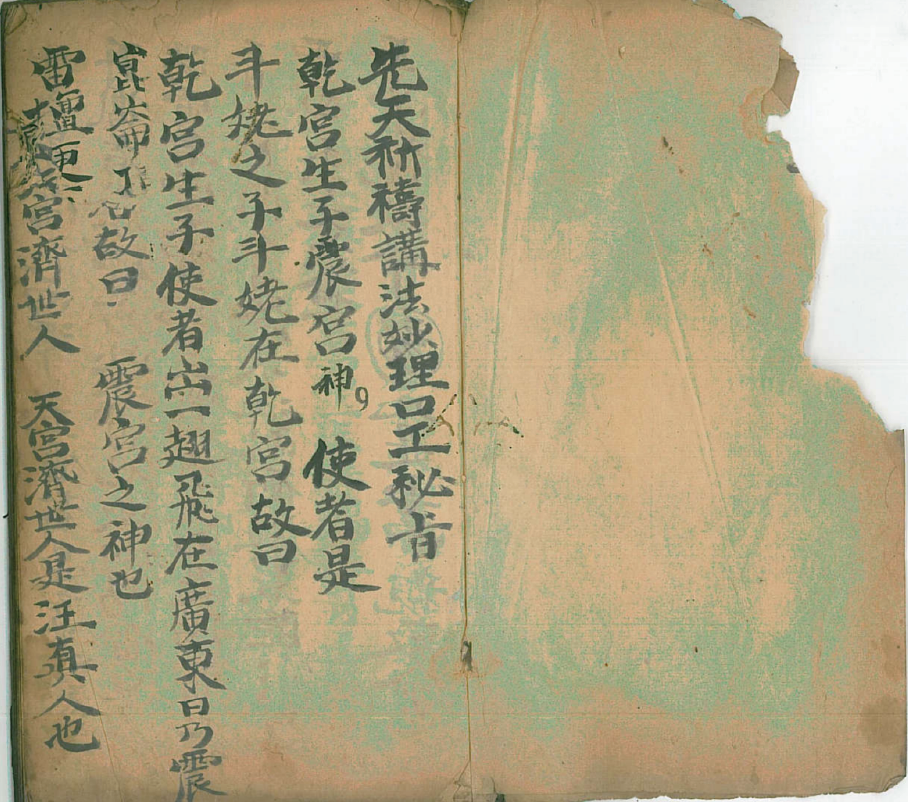 先天祈禱講法妙理口工秘旨
乾宮生子震宮神 使者是
斗姥之子斗姥在乾宮故曰
乾宮生子使者出一翅飛在廣東曰乃震
崑崙 故曰 震宮之神也
雷壇更 宮濟世人 天宮濟世人是汪真人也